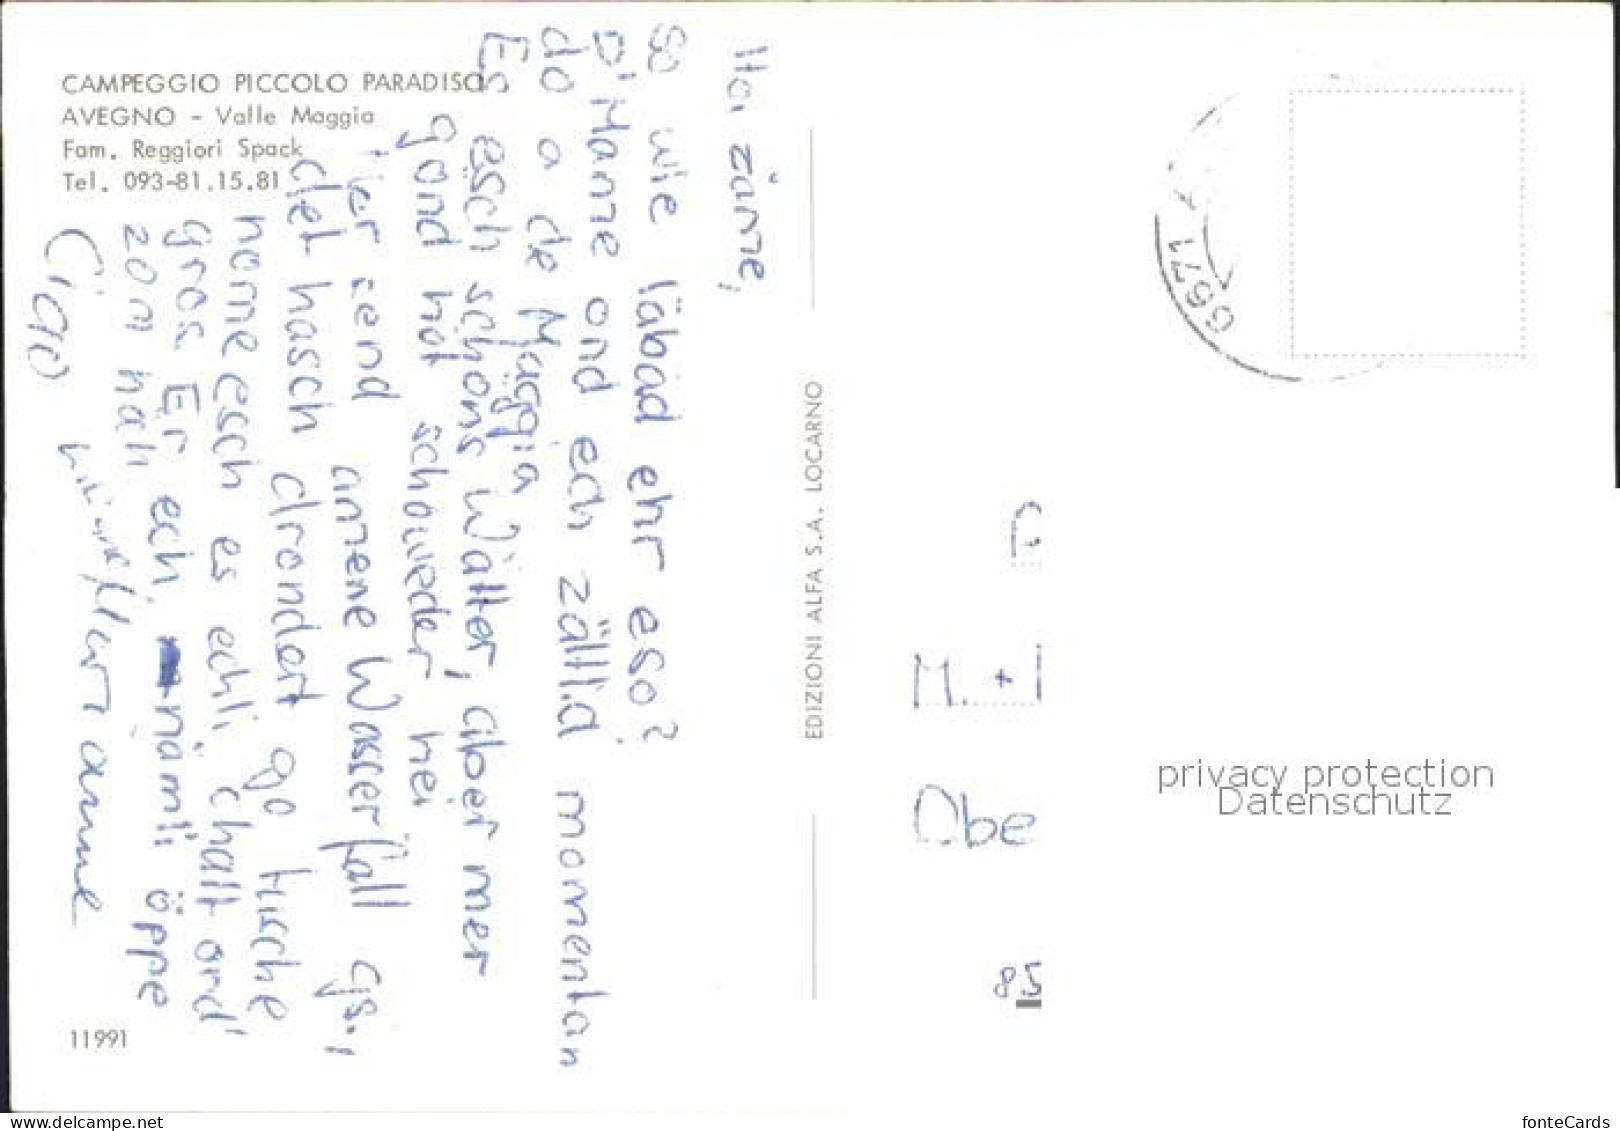 CAMPEGGIO PICCOLO PARADISO
AVEGNO - Valle Maggia
Fam. Reggiori Spack
Tel. 093-81.15.81
Hoi zäme,
So wie läbäd ehr eso?
D'Manne ond ech zältlid momentan
do a de Maggia
Es esch schöns Wätter, aber mer
gönd höt scho weder hei
Mer send amene Wasserfall gs.,
det hasch dronder go tusche
esch es echli chalt ond
gros. Er ech, nämli öppe
20m hoh.
Ciao
Marianne
11991
EDIZIONI ALFA S.A. LOCARNO
6671
M. +
Obe
85
privacy protection
Datenschutz
www.delcampe.net
fonteCards